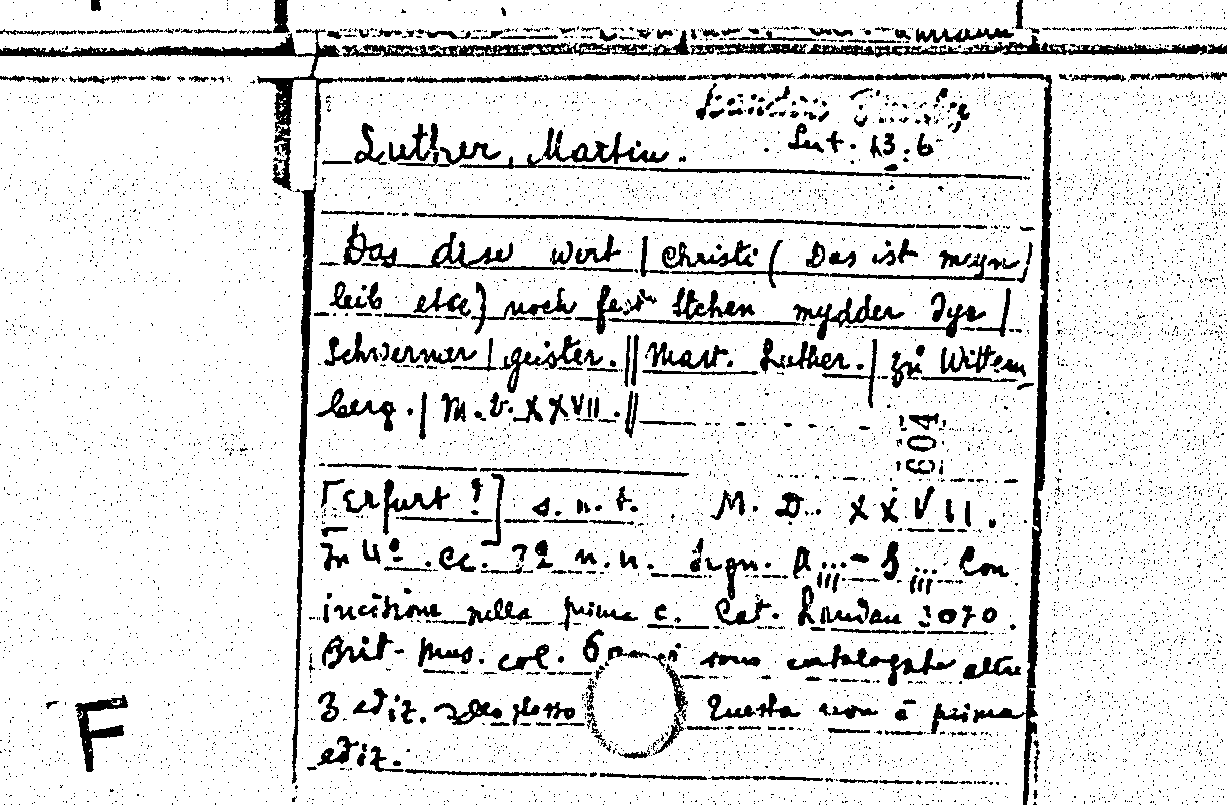 Lut. 13.6
Luther, Martin.
Das dise wort | Christi ( Das ist meyn |
leib etce) noch fest stehen mydder Dye |
Schwermer | geister. || Mart. Luther. | zů Wittem
berg. | M.D.XXVII. ||
604
[Erfurt ?] s. n. t. M. D. XXVII.
In 4º. Cc. 72 n. n. Segn. A... - S... Con
incisione nella prima c. Cat. 3070.
Brit. Mus. col. sono catalogate altre
3 ediz. Questa non è prima
ediz.
F